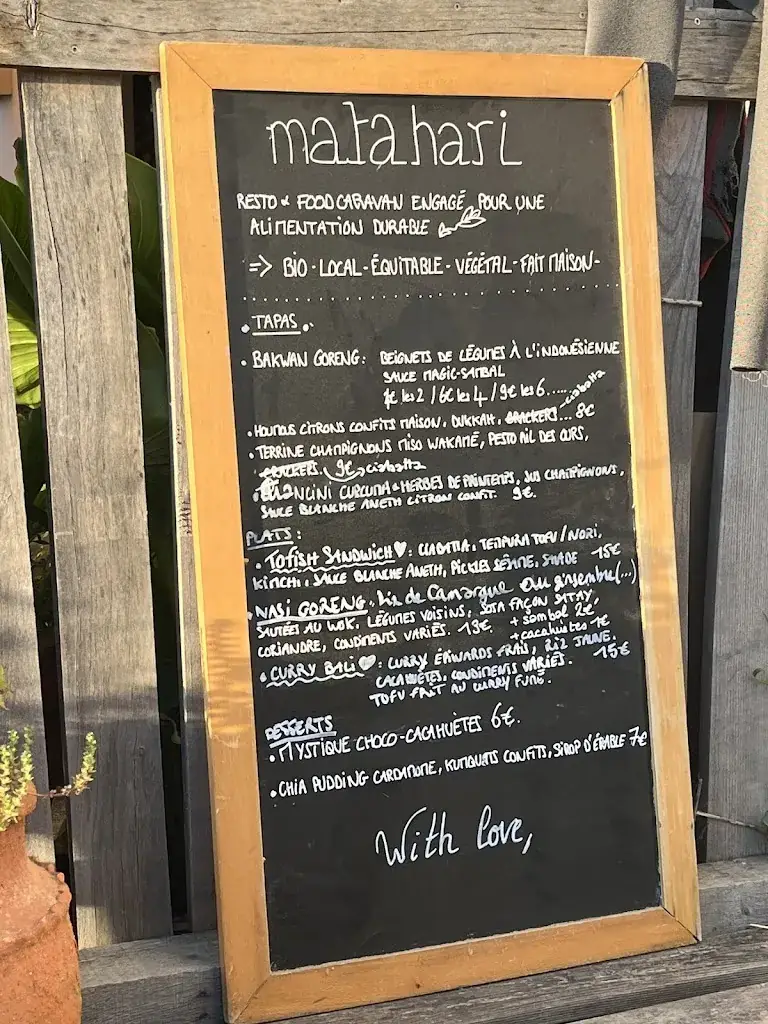 matahari
RESTO & FOOD CARAVAN ENGAGÉ POUR UNE
ALIMENTATION DURABLE
=> BIO - LOCAL - ÉQUITABLE - VÉGÉTAL - FAIT MAISON -
TAPAS
• BAKWAN GORENG : BEIGNETS DE LÉGUMES À L'INDONÉSIENNE
SAUCE MAGIC-SAMBAL
les 2 / 6€ les 4 / 9€ les 6......
• HOUMOUS CITRONS CONFITS MAISON, DUKKAH, CRACKERS... ciabatta 8€
• TERRINE CHAMPIGNONS MISO WAKAMÉ, PESTO AIL DES OURS,
CRACKERS. 9€ ciabatta
• ARANCINI CURCUMA & HERBES DE PRINTEMPS, JUS CHAMPIGNONS,
SAUCE BLANCHE ANETH CITRON CONFIT. 9€.
PLATS :
• TOFISH SANDWICH ♡ : CIABATTA, TEMPURA TOFU / NORI,
KIMCHI, SAUCE BLANCHE ANETH, PICKLES SÉSAME, SALADE 15€
• NASI GORENG : Riz de Camargue au gingembre (...)
SAUTÉES AU WOK, LÉGUMES VOISINS, SOJA FAÇON SATAY,
CORIANDRE, CONDIMENTS VARIÉS. 13€. + sambal 2€
+ cacahuètes 1€
• CURRY BALI ♡ : CURRY ÉPINARDS FRAIS, RIZ JAUNE.
CACAHUÈTES, CONDIMENTS VARIÉS. 15€
TOFU FAIT AU CURRY FUMÉ.
DESSERTS
• MYSTIQUE CHOCO-CACAHUÈTES 6€.
• CHIA PUDDING CARDAMOME, KUMQUATS CONFITS, SIROP D'ÉRABLE 7€
With love,